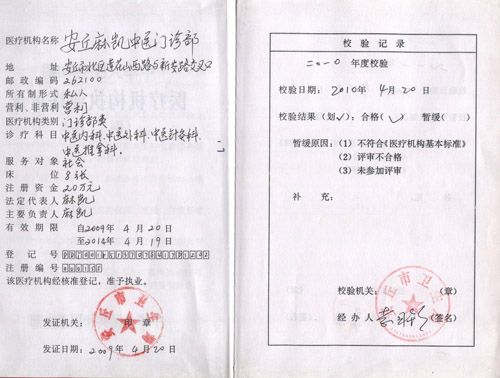 医疗机构名称 安丘麻凯中医门诊部
地 址 安丘市北区莲花山西路与新安路交叉口
邮政编码 262100
所有制形式 私人
营利、非营利 营利
医疗机构类别 门诊部类
诊疗科目 中医内科.中医外科.中医针灸科.
中医推拿科.
服务对象 社会
床 位 8张
注册资金 20万元
法定代表人 麻凯
主要负责人 麻凯
有效期限 自2009年 4 月 20 日
至2014年 4 月 19 日
登记号
注册编号
该医疗机构经核准登记，准予执业。
发证机关： 印 章
发证日期：2009年 4 月 20 日
校验记录
二〇一〇 年度校验
校验日期：2010 年 4 月 20 日
校验结果（划√）：合格（√） 暂缓（ ）
暂缓原因：（1）不符合《医疗机构基本标准》
（2）评审不合格
（3）未参加评审
补 充：
安丘市卫
校验机关： （章）
经办人 （签名）